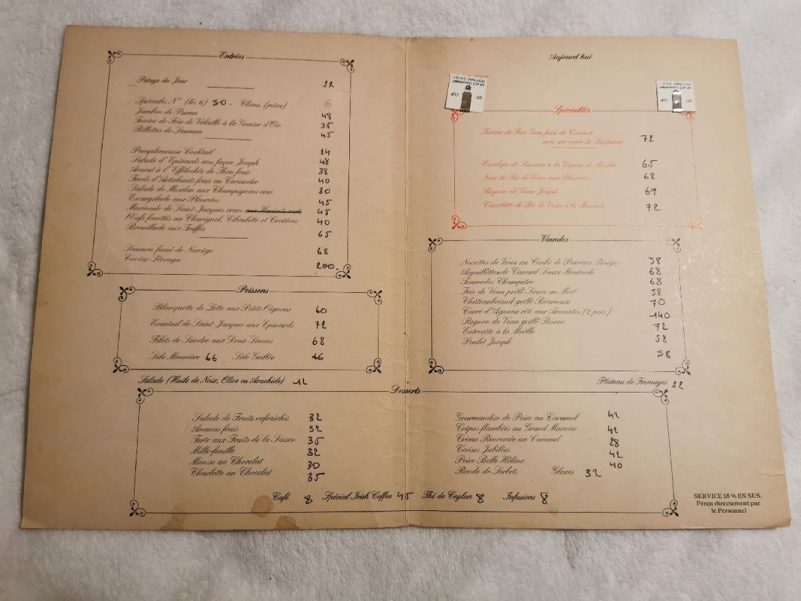 Entrées
Potage du Jour 22
Spéciales N° (les 6) 50. Clams (pièce) 6
Jambon de Parme 48
Terrine de Foie de Volaille à la Gousse d'Oie 35
Rillettes de Saumon 45
Pamplemousse Cocktail 24
Salade d'Epinards crus façon Joseph 48
Avocat à l'Effilochée de Thon frais 38
Fonds d'Artichauts frais au Coriandre 40
Salade de Mesclun aux Champignons crus 30
Escargolade aux Pleurotes 45
Marinade de Saint-Jacques crues 45
Œufs fouettés au Chavignol, Ciboulette et Croûtons 40
Brouillade aux Truffes 65
Saumon fumé de Norvège 68
Caviar Sévruga 200.
Poissons
Blanquette de Lotte aux Petits Oignons 60
Eventail de Saint Jacques aux Epinards 72
Filets de Sandre aux Deux Sauces 68
Sole Meunière 66 Sole Grillée 66
Salade (Huile de Noix, Olive ou Arachide) 12
Aujourd'hui
Spécialités
Terrine de Foie Gras frais de Canard
avec un verre de Sauternes 72
Escalope de Saumon à la Vapeur de 65
Noix de Ris de Veau aux Pleurotes 68
Rognon de Veau Joseph 69
Cassolette de Ris de Veau à la Moutarde 72
Viandes
Noisettes de Veau au Coulis de Poivrons Rouges 58
Aiguillettes de Canard Sauce Moutarde 68
Tournedos Champêtre 68
Foie de Veau poêlé Sauce au Miel 58
Châteaubriand grillé Béarnaise 70
Carré d'Agneau rôti aux Aromates (2 pers.) 140
Rognon de Veau grillé Bercy 72
Entrecôte à la Moëlle 58
Poulet Joseph 58
Plateau de Fromages 22
Desserts
Salade de Fruits rafraîchis 32
Ananas frais 32
Tarte aux Fruits de la Saison 35
Mille-feuille 32
Mousse au Chocolat 30
Charlotte au Chocolat 35
Gourmandise de Poire au Caramel 42
Crêpes flambées au Grand Marnier 42
Crème Renversée au Caramel 28
Cerises Jubilées 42
Poire Belle Hélène 40
Ronde de Sorbets Glaces 32
Café 8 Spécial Irish Coffee 45 Thé de Ceylan 8 Infusions 8
SERVICE 15 % EN SUS.
Perçu directement par
le Personnel